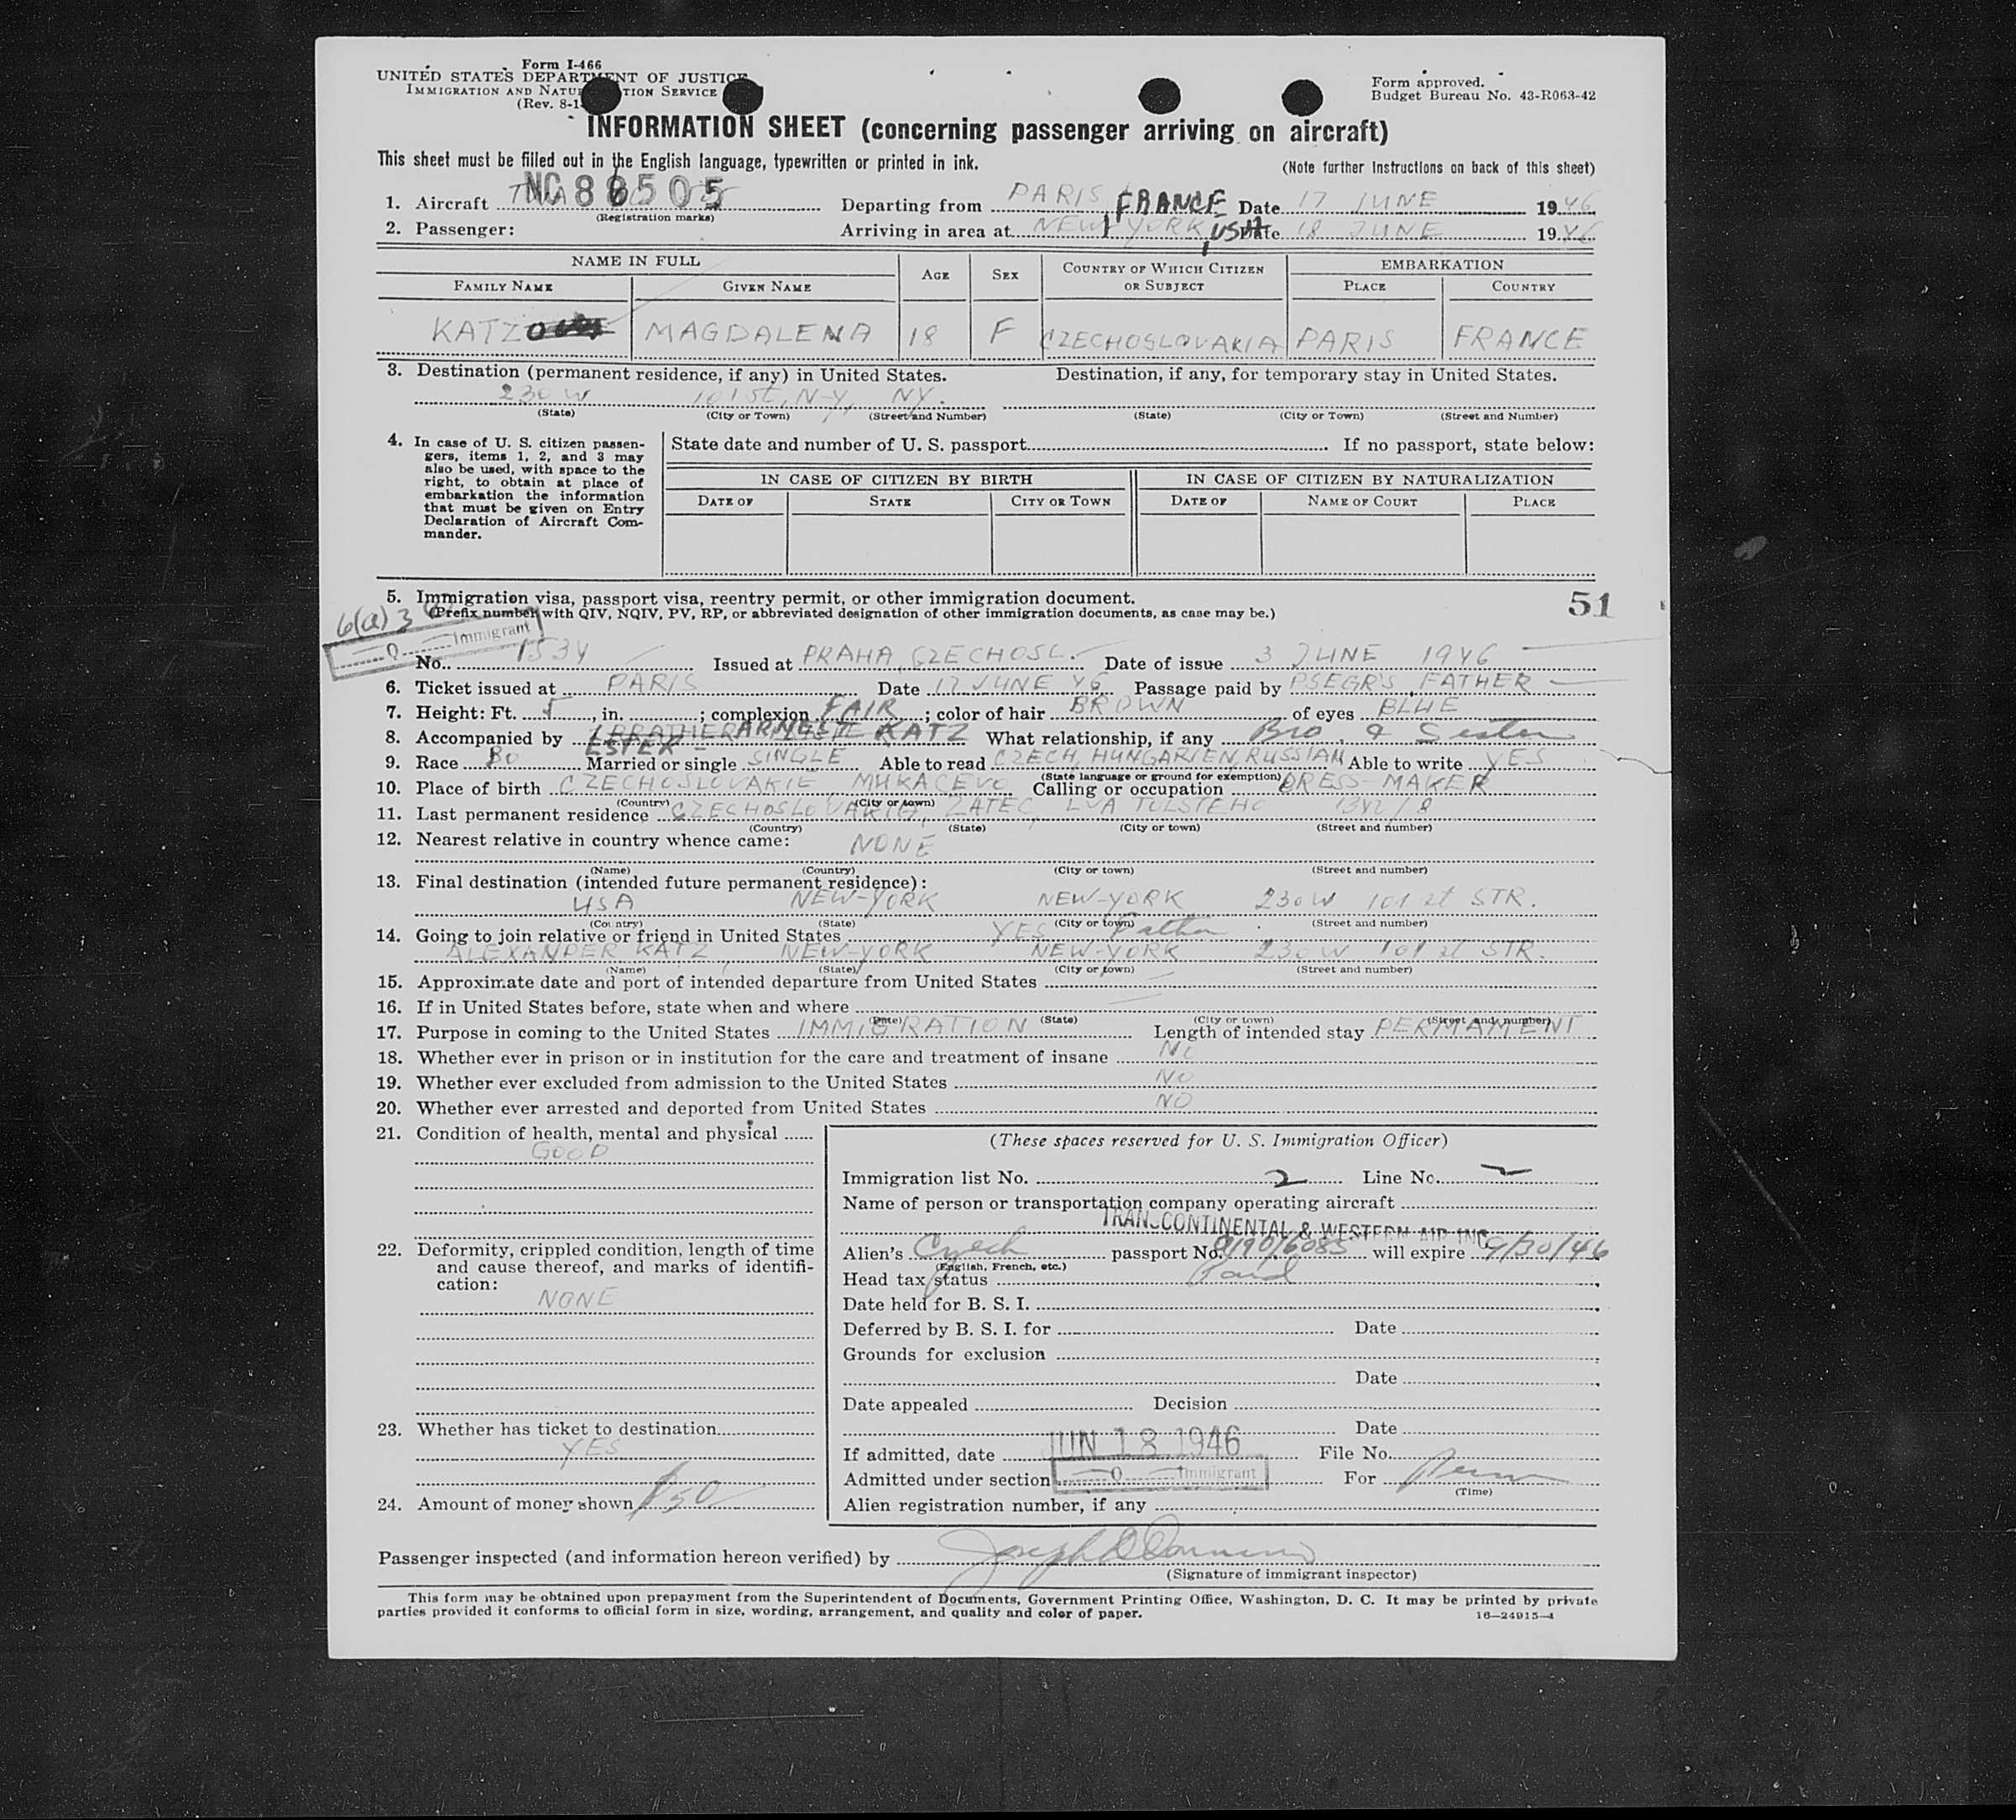 Form I-466
UNITED STATES DEPARTMENT OF JUSTICE
IMMIGRATION AND NATU TION SERVICE
(Rev. 8-1
Form approved.
Budget Bureau No. 43-R063-42
INFORMATION SHEET (concerning passenger arriving on aircraft)
This sheet must be filled out in the English language, typewritten or printed in ink.
(Note further instructions on back of this sheet)
1. Aircraft TWA NC 86505 Departing from PARIS, FRANCE Date 17 JUNE 1946
(Registration marks)
2. Passenger: Arriving in area at NEW YORK, USA Date 18 JUNE 1946
NAME IN FULL AGE SEX COUNTRY OF WHICH CITIZEN OR SUBJECT EMBARKATION
FAMILY NAME GIVEN NAME PLACE COUNTRY
KATZ MAGDALENA 18 F CZECHOSLOVAKIA PARIS FRANCE
3. Destination (permanent residence, if any) in United States. Destination, if any, for temporary stay in United States.
230 W 101 St, N-Y, NY.
(State) (City or Town) (Street and Number) (State) (City or Town) (Street and Number)
4. In case of U. S. citizen passen-
gers, items 1, 2, and 3 may
also be used, with space to the
right, to obtain at place of
embarkation the information
that must be given on Entry
Declaration of Aircraft Com-
mander.
State date and number of U. S. passport If no passport, state below:
IN CASE OF CITIZEN BY BIRTH IN CASE OF CITIZEN BY NATURALIZATION
DATE OF STATE CITY OR TOWN DATE OF NAME OF COURT PLACE
5. Immigration visa, passport visa, reentry permit, or other immigration document.
(Prefix number with QIV, NQIV, PV, RP, or abbreviated designation of other immigration documents, as case may be.)
51
6(a)3
Q Immigrant
No. 1534 Issued at PRAHA, CZECHOSL. Date of issue 3 JUNE 1946
6. Ticket issued at PARIS Date 17 JUNE 46 Passage paid by PSEGR'S FATHER
7. Height: Ft. 5, in. ; complexion FAIR ; color of hair BROWN of eyes BLUE
8. Accompanied by KATZ What relationship, if any Bro. & Sister
ESTER -
9. Race Married or single SINGLE Able to read CZECH, HUNGARIEN, RUSSIAN Able to write YES
(State language or ground for exemption)
10. Place of birth CZECHOSLOVAKIE MUKACEVO Calling or occupation DRESS-MAKER
(Country) (City or town)
11. Last permanent residence CZECHOSLOVAKIA, ZATEC, LVA TOLSTEHO
(Country) (State) (City or town) (Street and number)
12. Nearest relative in country whence came: NONE
(Name) (Country) (City or town) (Street and number)
13. Final destination (intended future permanent residence):
USA NEW-YORK NEW-YORK 230 W 101 st STR.
(Country) (State) (City or town) (Street and number)
14. Going to join relative or friend in United States YES Father
ALEXANDER KATZ, NEW-YORK NEW-YORK 230 W 101 st STR.
(Name) (State) (City or town) (Street and number)
15. Approximate date and port of intended departure from United States
16. If in United States before, state when and where
(Date) (State) (City or town) (Street and number)
17. Purpose in coming to the United States IMMIGRATION Length of intended stay PERMANENT
18. Whether ever in prison or in institution for the care and treatment of insane NO
19. Whether ever excluded from admission to the United States NO
20. Whether ever arrested and deported from United States NO
21. Condition of health, mental and physical
GOOD
22. Deformity, crippled condition, length of time
and cause thereof, and marks of identifi-
cation:
NONE
23. Whether has ticket to destination
YES
24. Amount of money shown $50
(These spaces reserved for U. S. Immigration Officer)
Immigration list No. 2 Line No. 2
Name of person or transportation company operating aircraft
TRANSCONTINENTAL & WESTERN AIR INC
Alien's Czech passport No. will expire 9/30/46
(English, French, etc.)
Head tax status Paid
Date held for B. S. I.
Deferred by B. S. I. for Date
Grounds for exclusion
Date
Date appealed Decision
Date
If admitted, date JUN 18 1946 File No.
Admitted under section Q Immigrant For Perm
(Time)
Alien registration number, if any
Passenger inspected (and information hereon verified) by
(Signature of immigrant inspector)
This form may be obtained upon prepayment from the Superintendent of Documents, Government Printing Office, Washington, D. C. It may be printed by private
parties provided it conforms to official form in size, wording, arrangement, and quality and color of paper. 16—24915-4